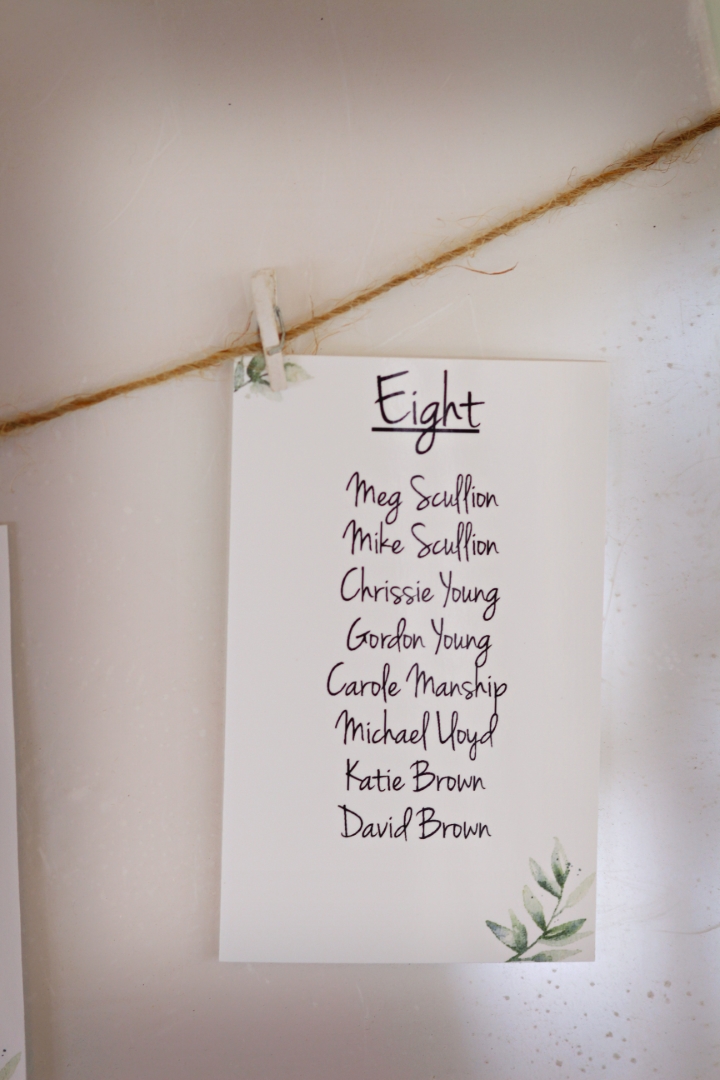 Eight
Meg Scullion
Mike Scullion
Chrissie Young
Gordon Young
Carole Manship
Michael Lloyd
Katie Brown
David Brown